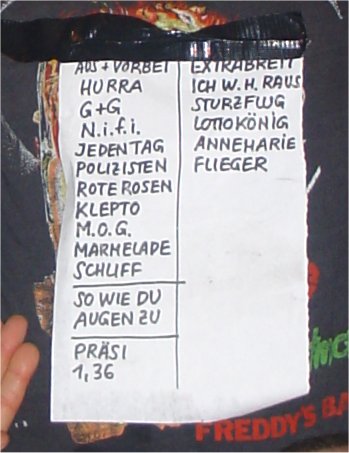 AUS + VORBEI
HURRA
G+G
N.i.f.i.
JEDEN TAG
POLIZISTEN
ROTE ROSEN
KLEPTO
M.O.G.
MARMELADE
SCHLIFF
SO WIE DU
AUGEN ZU
PRÄSI
1,36
EXTRABREIT
ICH W.H. RAUS
STURZFLUG
LOTTOKÖNIG
ANNEMARIE
FLIEGER
FREDDY'S